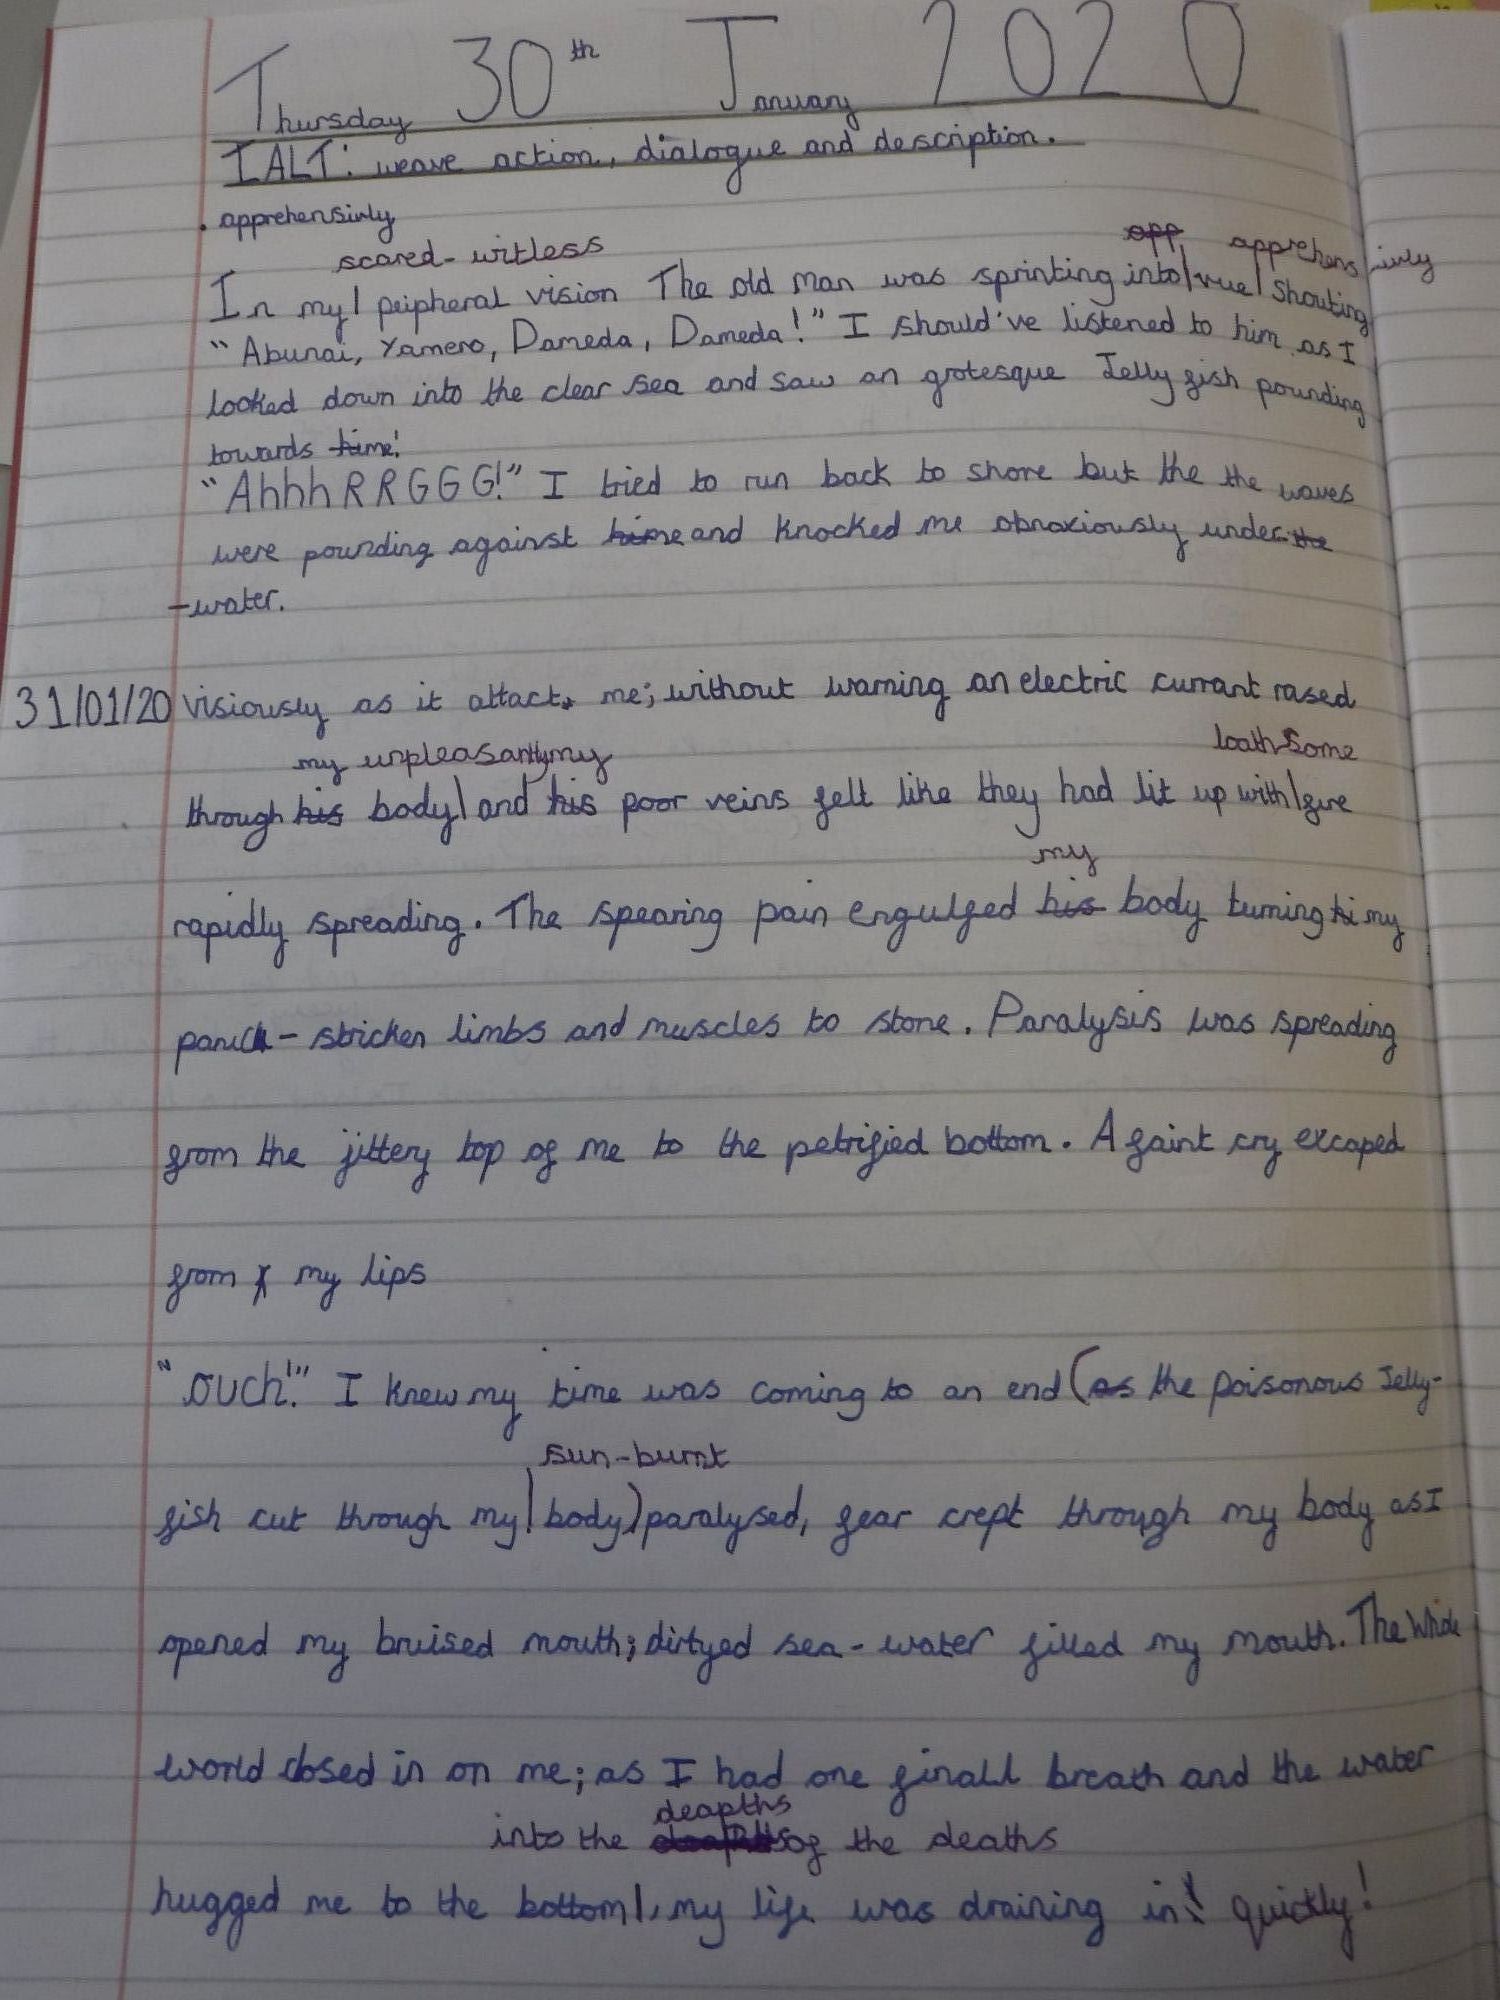 Thursday 30th January 2020
IALT: weave action, dialogue and description.
. apprehensivly
scared-witless app apprehensivly
In my peripheral vision The old man was sprinting into vue shouting
"Abunai, Yamero, Dameda, Dameda!" I should've listened to him as I
looked down into the clear sea and saw an grotesque Jelly fish pounding
towards
"AhhhRRGGG!" I tried to run back to shore but the the waves
were pounding against and knocked me obnoxiously under the
-water.
31/01/20 visiously as it attack me; without warning an electric currant rased
my unpleasantly my loathsome
through his body and his poor veins felt like they had lit up with fire
my
rapidly spreading. The spearing pain engulfed his body turning hi my
panick-stricken limbs and muscles to stone. Paralysis was spreading
from the jittery top of me to the petrified bottom. A faint cry excaped
from my lips
"OUCH!" I knew my time was coming to an end (as the poisonous Jelly-
sun-burnt
fish cut through my body) paralysed, fear crept through my body as I
opened my bruised mouth; dirtyed sea-water filled my mouth. The whole
world closed in on me; as I had one finall breath and the water
deapths
into the of the deaths
hugged me to the bottom, my life was draining in quickly!